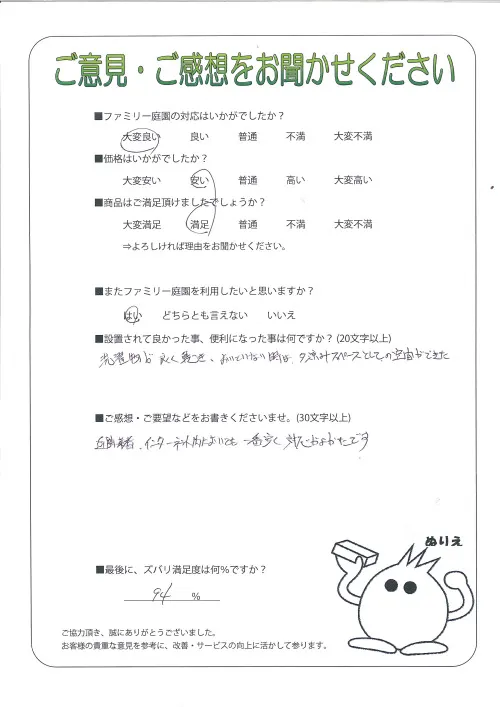 ご意見・ご感想をお聞かせください
■ファミリー庭園の対応はいかがでしたか?
大変良い 良い 普通 不満 大変不満
■価格はいかがでしたか?
大変安い 安い 普通 高い 大変高い
■商品はご満足頂けましたでしょうか?
大変満足 満足 普通 不満 大変不満
⇒よろしければ理由をお聞かせください。
■またファミリー庭園を利用したいと思いますか?
はい どちらとも言えない いいえ
■設置されて良かった事、便利になった事は何ですか?(20文字以上)
洗濯物が良く乾き、 スペースとしての空間ができた
■ご感想・ご要望などをお書きくださいませ。(30文字以上)
インターネット 一番安く 対応もよかったです
■最後に、ズバリ満足度は何%ですか?
94 %
ぬりえ
ご協力頂き、誠にありがとうございました。
お客様の貴重な意見を参考に、改善・サービスの向上に活かして参ります。